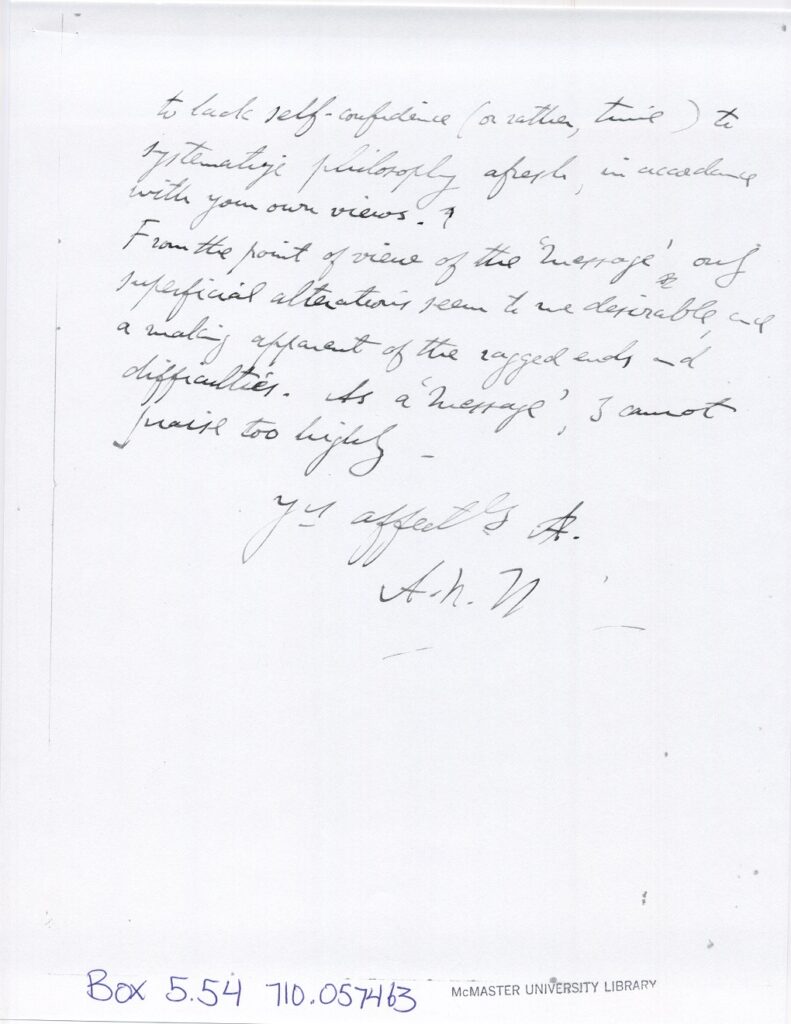 to lack self-confidence (or rather, time) to
systematize philosophy afresh, in accordance
with your own views.
From the point of view of the 'message' only
superficial alterations seem to me desirable, and
a making apparent of the ragged ends and
difficulties. As a 'message', I cannot
praise too highly –
Yrs affectly
A. N. W
Box 5.54 710.057463
McMASTER UNIVERSITY LIBRARY